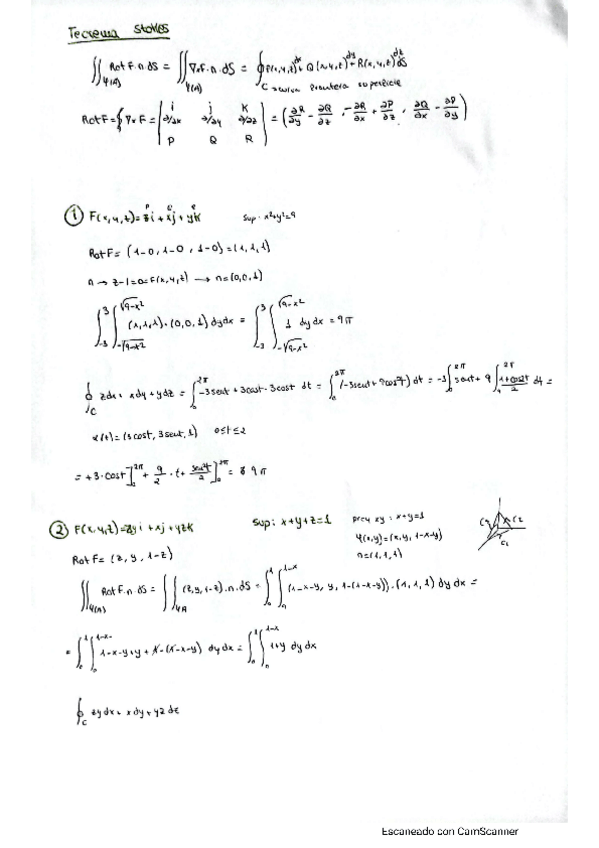 Teorema Stokes
∬φ(A) Rot F·n·dS = ∬φ(A) ∇×F·n·dS = ∮ P(x,y,z)dx + Q(x,y,z)dy + R(x,y,z)dz
C → curva frontera superficie
Rot F = ∇×F = | i j k ; ∂/∂x ∂/∂y ∂/∂z ; P Q R | = (∂R/∂y - ∂Q/∂z, -∂R/∂x + ∂P/∂z, ∂Q/∂x - ∂P/∂y)
① F(x,y,z) = zi + xj + yk sup: x²+y²=9
Rot F = (1-0, 1-0, 1-0) = (1,1,1)
n → z-1=0=F(x,y,z) → n=(0,0,1)
∫₋₃³ ∫ -√9-x² √9-x² (1,1,1)·(0,0,1) dy dx = ∫₋₃³ ∫ -√9-x² √9-x² 1 dy dx = 9π
∮C zdx + xdy + ydz = ∫₀²π -3sent + 3cost·3cost dt =
α(t) = (3cost, 3sent, 1) 0≤t≤2
② F(x,y,z) = zyi + xj + yzk Sup: x+y+z=1 proy xy: x+y=1
φ(x,y)=(x,y,1-x-y)
Rot F = (z, y, 1-z) n=(1,1,1)
∬φ(A) Rot F·n·dS = ∬φA (z,y,1-z)·n·dS = ∫₀¹ ∫₀¹⁻ˣ (1-x-y, y, 1-(1-x-y))·(1,1,1) dy dx =
= ∫₀¹ ∫₀¹⁻ˣ 1-x-y+y+1-(1-x-y) dy dx = ∫₀¹ ∫₀¹⁻ˣ 1+y dy dx
∮C zy dx + x dy + yz dz
Escaneado con CamScanner